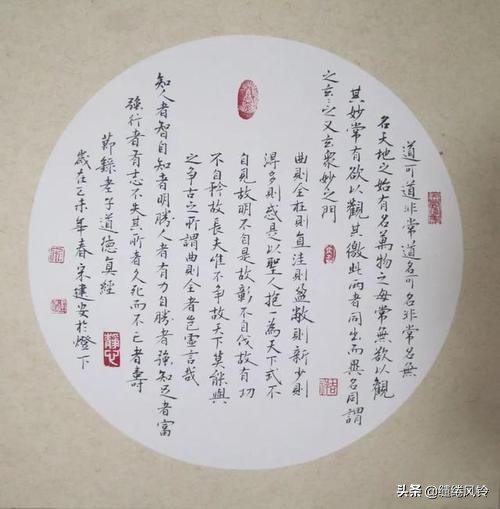 道可道非常道名可名非常名無
名天地之始有名萬物之母常無欲以觀
其妙常有欲以觀其徼此兩者同出而異名同謂
之玄〻之又玄衆妙之門
曲則全枉則直洼則盈敝則新少則
得多則惑是以聖人抱一為天下式不
自見故明不自是故彰不自伐故有功
不自矜故長夫唯不爭故天下莫能與
之爭古之所謂曲則全者豈虛言哉
知人者智自知者明勝人者有力自勝者強知足者富
強行者有志不失其所者久死而不亡者壽
節錄老子道德真經
歲在乙未年春宋建安於燈下
靜心
头条 @缱绻风铃